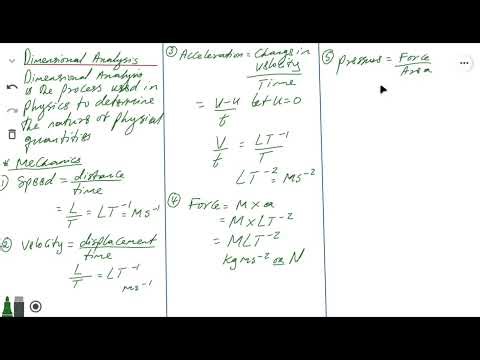 Dimensional Analysis
Dimensional Analysis
is the process used in
physics to determine
the nature of physical
quantities
* Mechanics
① Speed = distance
time
= L/T = LT⁻¹ = MS⁻¹
② Velocity = displacement
time
L/T = LT⁻¹
MS⁻¹
③ Acceleration = Change in
Velocity
Time
= V-u/t let u=0
V/t = LT⁻¹/T
LT⁻² = MS⁻²
④ Force = M x a
= M x LT⁻²
= MLT⁻²
kg ms⁻² or N
⑤ pressure = Force
Area